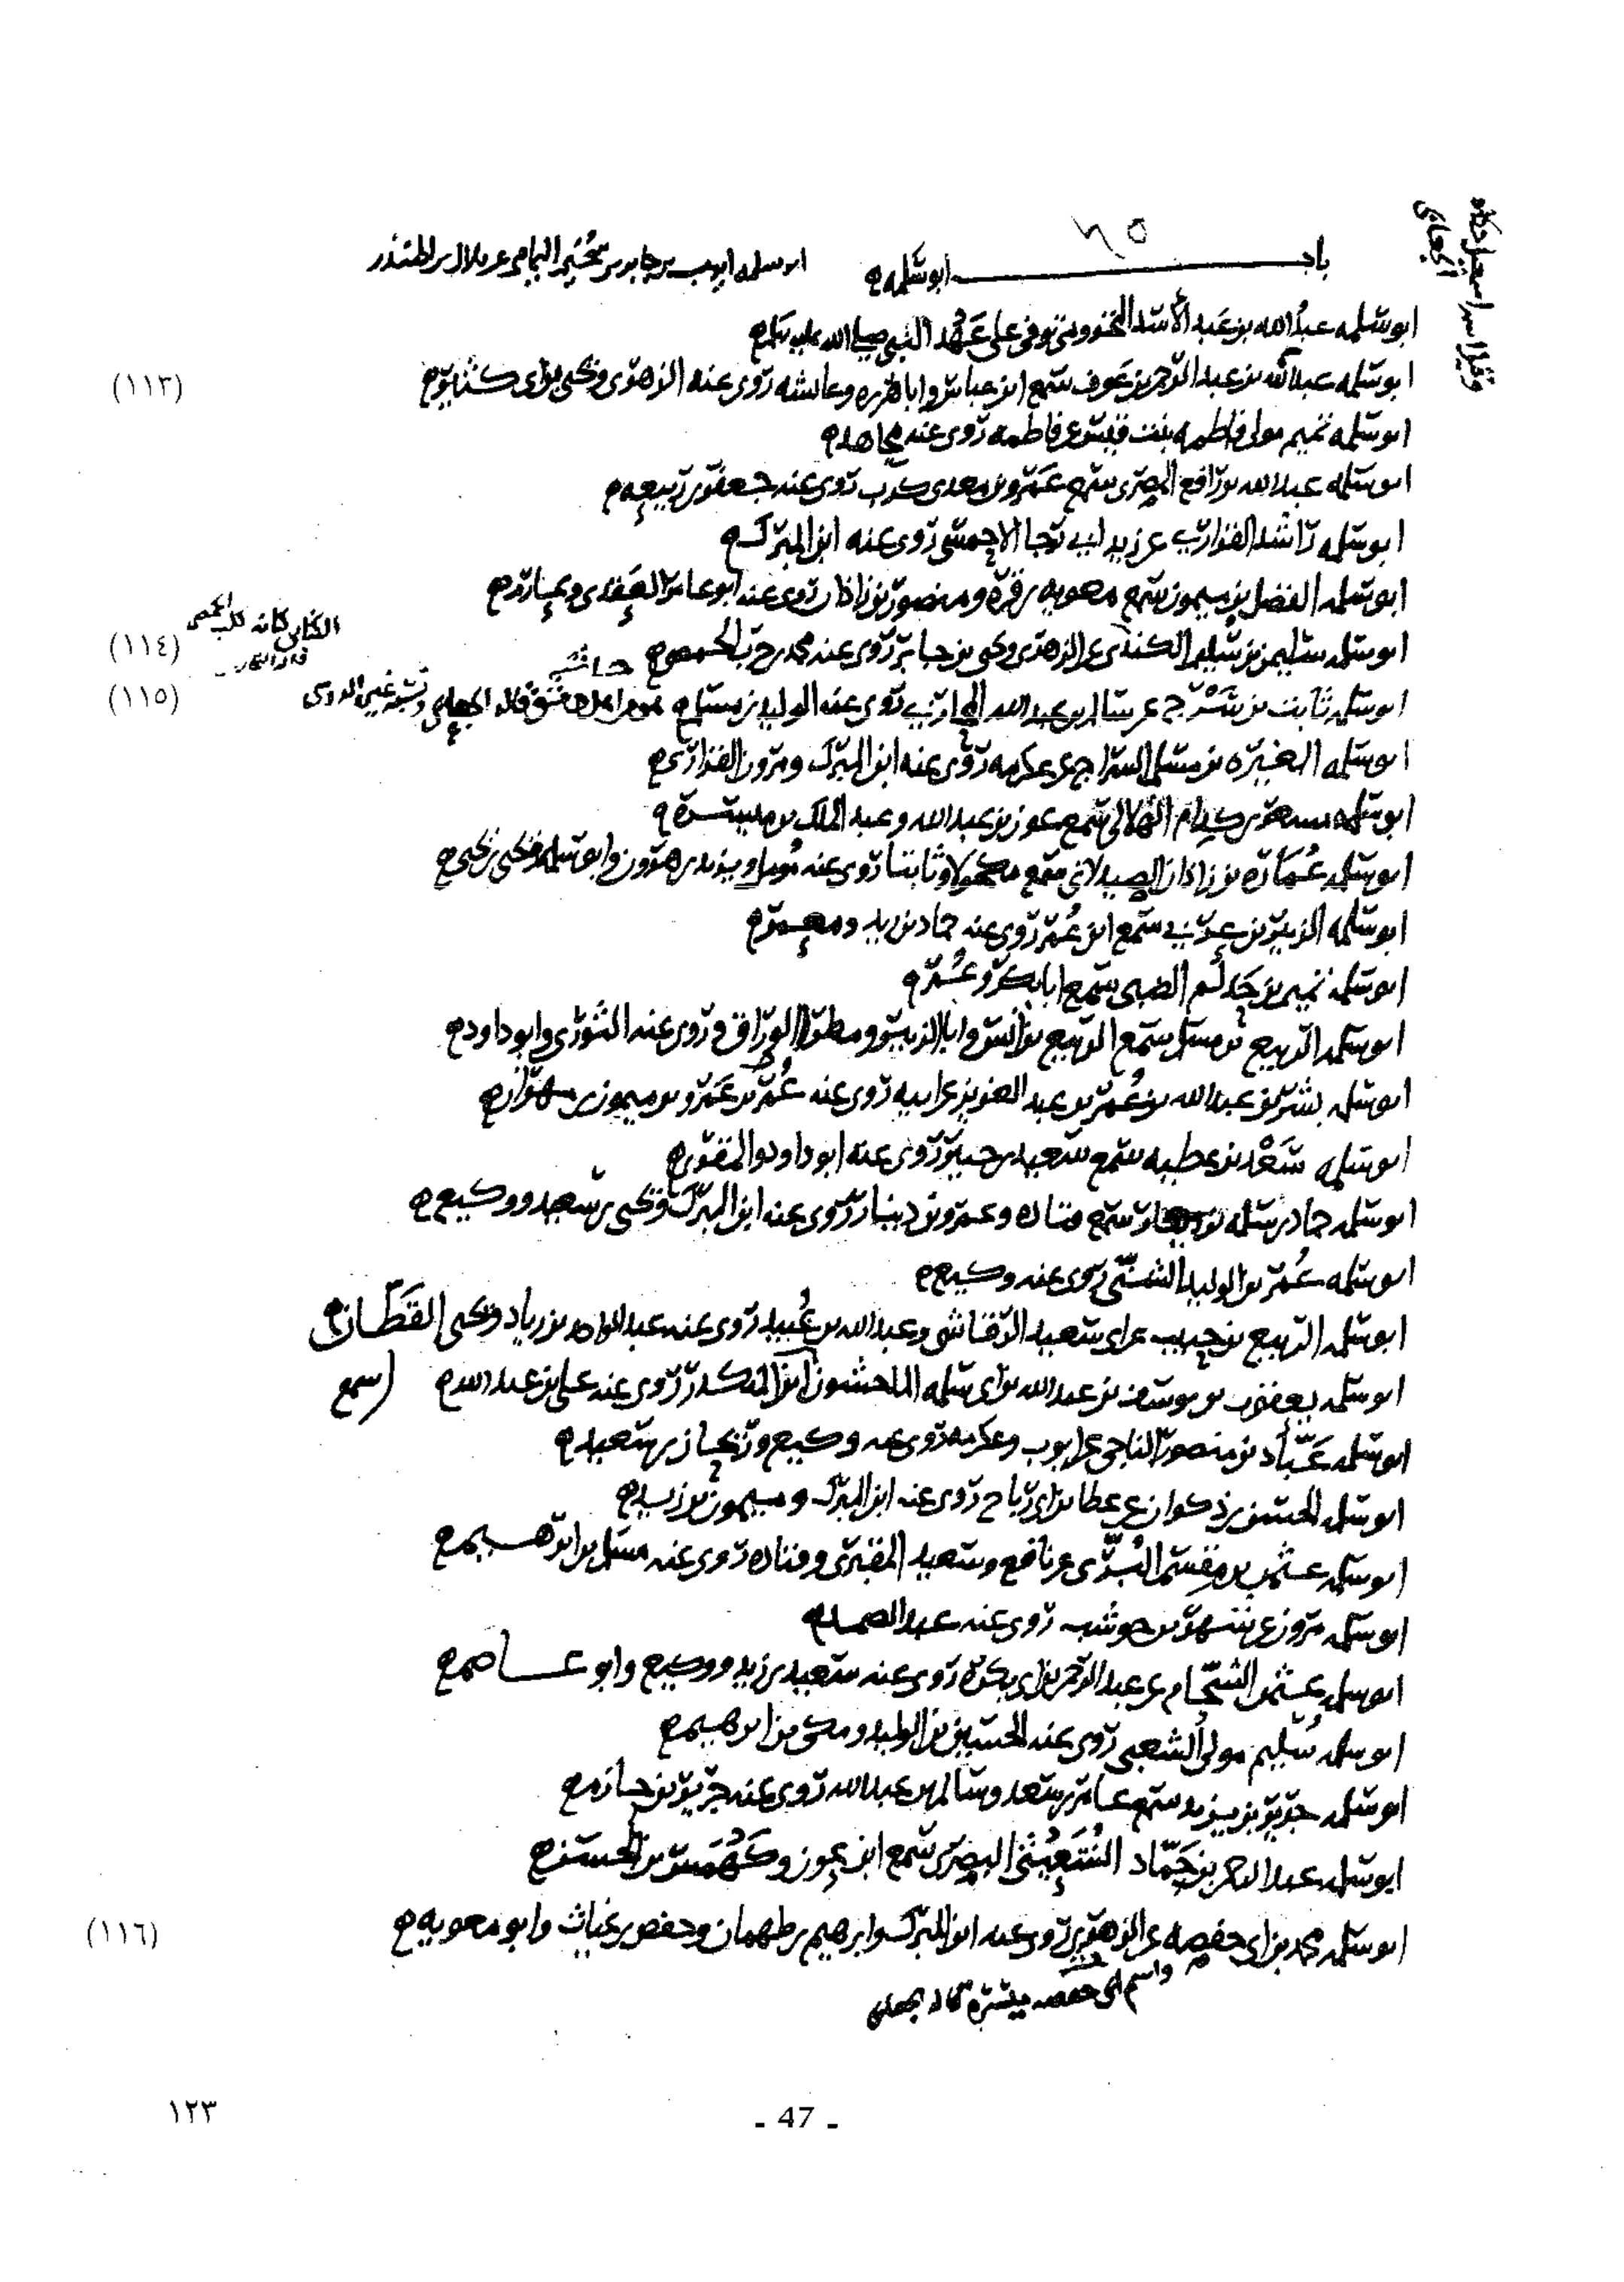 ٦٥
باب ابو سلمه
ابو سلمه ايوب بن جابر بن سُحَيم اليمامى عن بلال بن المنذر
وقيل اسمه اسمعيل
ابو سلمه عبدُ الله بن عَبد الأسَد المخزومى توفى على عَهْد النبى صلى الله عليه وسلم
ابو سلمه عبد الله بن عبد الرحمن بن عَوف سَمع ابن عباس وابا هريره وعائشه رَوى عنه الزهرى ويحيى بن ابى كثير
(١١٣)
ابو سلمه تميم مولى فاطمه بنت قيس عن فاطمه رَوى عنه مجاهد
ابو سلمه عبد الله بن رَافع المصرى سَمع عَمرو بن معدى كرب رَوى عنه جعفر بن رَبيعه
ابو سلمه رَاشد الفزارى عن زيد الاحمسى رَوى عنه ابن المبرك
ابو سلمه الفضل بن ميمون سَمع معويه بن قرة ومنصور بن زاذان رَوى عنه ابو عامر العقدى وعبد
ابو سلمه سليمن بن سُليم الكنانى عن الزهرى ويحيى بن جابر رَوى عنه محمد بن حرب الحمصى
الكنانى كاتب
(١١٤)
حاشية
ابو سلمه ثابت بن شَرْح عن سالم بن عبد الله المحاربى رَوى عنه الوليد بن مسلم
هو من اهل دمشق قاله الجعابى
(١١٥)
ابو سلمه المغيره بن مسلم السراج عن عكرمه رَوى عنه ابن المبرك ومرون الفزارى
ابو سلمه مسعر بن كدام الهلالى سَمع عون بن عبد الله وعبد الملك بن ميسره
ابو سلمه عُمَارَه بن زاذان الصيدلانى سَمع مكحولا وثابتا رَوى عنه ويزيد بن هرون وابو سلمه ويحيى بن يحيى
ابو سلمه الزبير بن عربى سَمع ابن عُمر رَوى عنه حماد بن زيد ومعمر
ابو سلمه تميم بن حَذلم الضبى سَمع ابا بكر وعُمر
ابو سلمه الربيع بن مسلم سَمع الربيع بن انس وابا الزبير ومطر الوراق رَوى عنه الثورى وابو داود
ابو سلمه بشر بن عبد الله بن عُمر بن عبد العزيز عن ابيه رَوى عنه عُمر بن عَمرو بن ميمون بن مهران
ابو سلمه سَعْد بن عطيه سَمع سعيد بن جبير رَوى عنه ابو داود المنقرى
ابو سلمه حماد بن سلمه بن دينار سَمع قتاده وعمرو بن دينار رَوى عنه ابن المبرك ويحيى بن سعيد ووكيع
ابو سلمه عُمر بن الوليد الشنّى رَوى عنه وكيع
ابو سلمه الربيع بن حبيب عن ابى سعيد الرقاشى وعبد الله بن عُبيد رَوى عنه عبد الواحد بن زياد ويحيى القَطَّان
ابو سلمه يعقوب بن يوسف بن عبد الله بن ابى سلمه الماجشون ابن المنكدر رَوى عنه على بن عبد الله
سمع
ابو سلمه عَبَّاد بن منصور الناجى عن ايوب وعكرمه رَوى عنه وكيع ويحيى بن سعيد
ابو سلمه الحسن بن ذكوان عن عطا بن ابى رَباح رَوى عنه ابن المبرك وميمون بن زيد
ابو سلمه عثمن بن مِقسَم البُرِّى عن نافع وسعيد المقبرى وقتاده رَوى عنه مسلم بن ابرهيم
ابو سلمه مروزى عن شهر بن حوشب رَوى عنه عبد الصمد
ابو سلمه عثمن الشحّام عن عبد الرحمن بن ابى بكره رَوى عنه سعيد بن زيد ووكيع وابو عاصم
ابو سلمه سُليم مولى الشعبى رَوى عنه الحسين بن الوليد ومكى بن ابرهيم
ابو سلمه جرير بن يزيد سَمع عامر بن سعد وسالم بن عبد الله رَوى عنه جرير بن حازم
ابو سلمه عبد الرحمن بن حَمّاد الشُّعَيْثى البصرى سَمع ابن عون وكَهْمَس بن الحسن
ابو سلمه محمد بن ابى حفصه عن الزهرى رَوى عنه ابن المبرك وابرهيم بن طهمان وحفص بن غياث وابو معويه
(١١٦)
واسم ابى حفصه ميسره قاله الجعابى
- 47 -
١٢٣